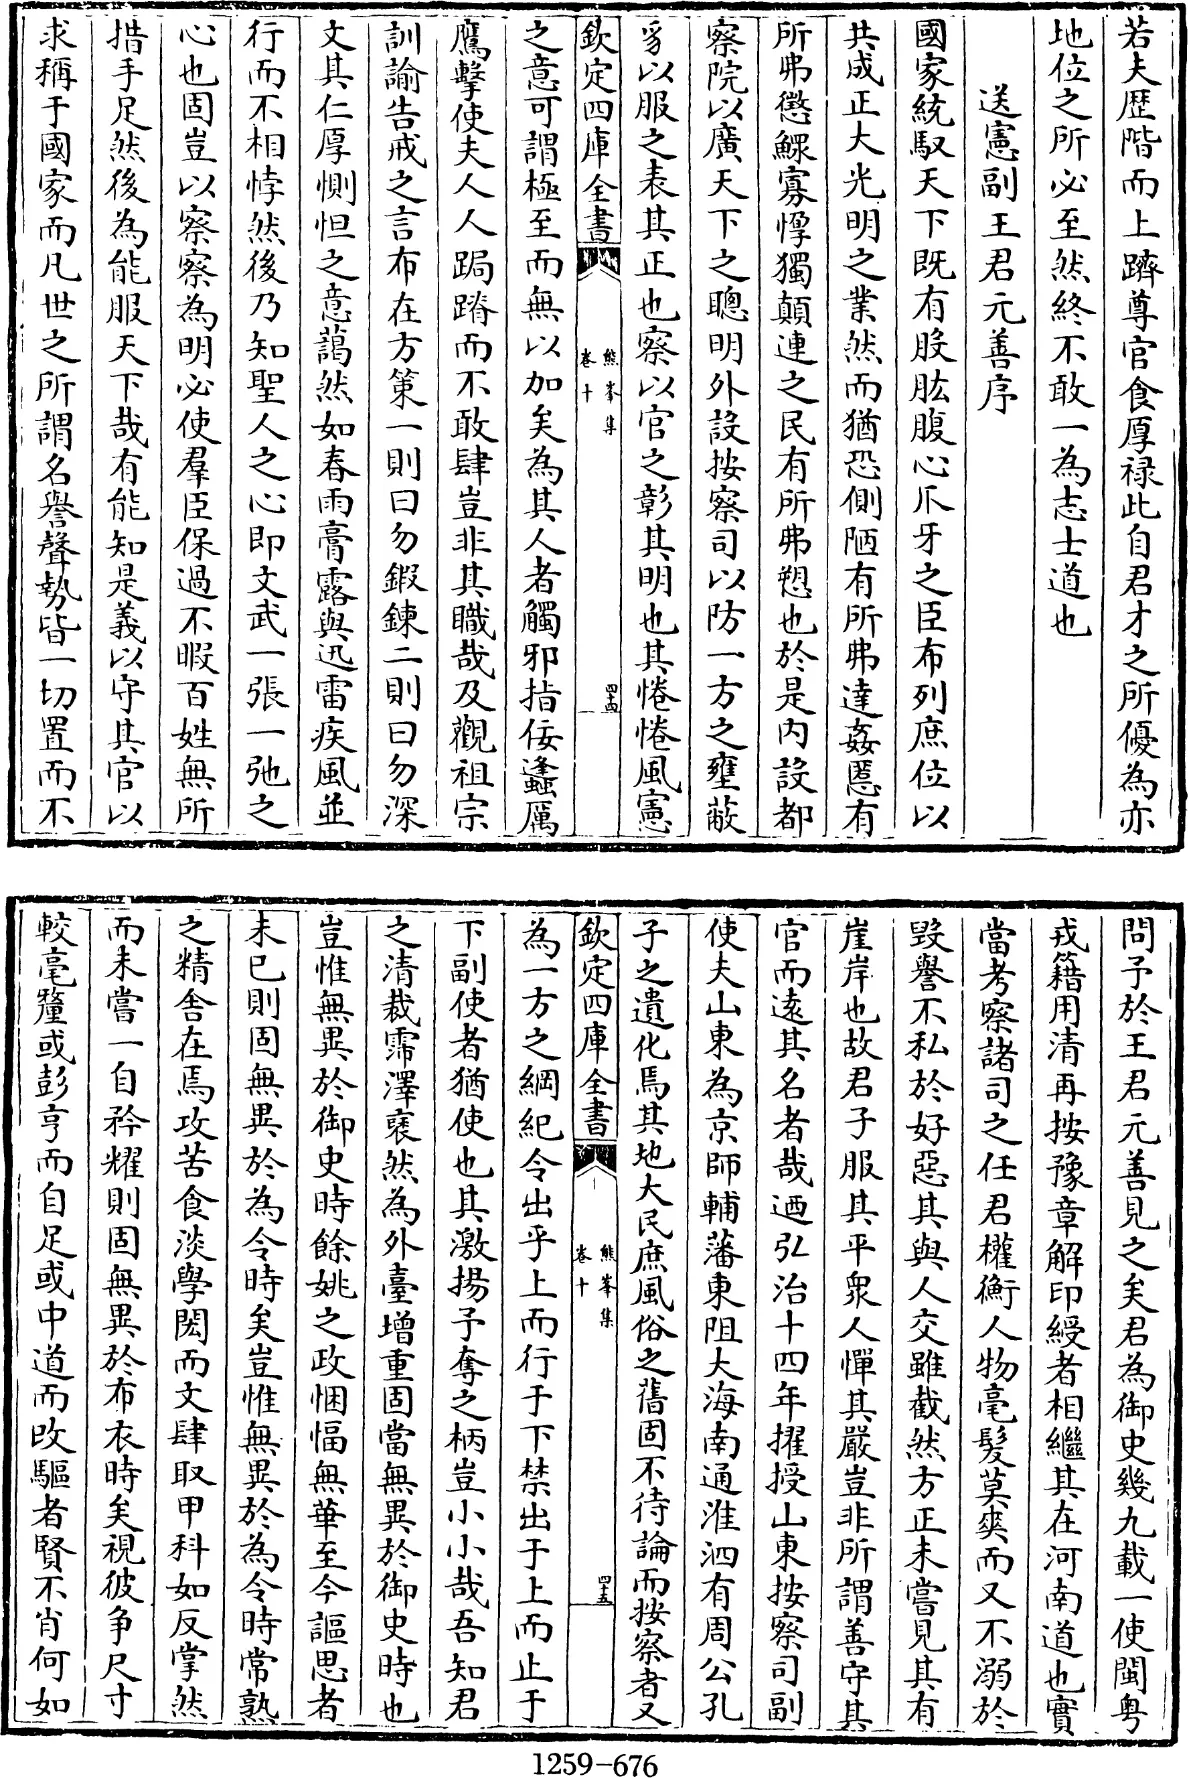 若夫歴階而上躋尊官食厚禄此自君才之所優為亦
地位之所必至然終不敢一為志士道也
送憲副王君元善序
國家統馭天下既有股肱腹心爪牙之臣布列庶位以
共成正大光明之業然而猶恐側陋有所弗達姦慝有
所弗懲鰥寡惸獨顛連之民有所弗愬也於是内設都
察院以廣天下之聰明外設按察司以防一方之壅蔽
豸以服之表其正也察以官之彰其明也其惓惓風憲
欽定四庫全書
熊峯集
卷十
四十四
之意可謂極至而無以加矣為其人者觸邪指佞蠭厲
鷹擊使夫人人跼蹐而不敢肆豈非其職哉及觀祖宗
訓諭告戒之言布在方策一則曰勿鍛鍊二則曰勿深
文其仁厚惻怛之意藹然如春雨膏露與迅雷疾風並
行而不相悖然後乃知聖人之心即文武一張一弛之
心也固豈以察察為明必使羣臣保過不暇百姓無所
措手足然後為能服天下哉有能知是義以守其官以
求稱于國家而凡世之所謂名譽聲勢皆一切置而不
問予於王君元善見之矣君為御史幾九載一使閩粤
戎籍用清再按豫章解印綬者相繼其在河南道也實
當考察諸司之任君權衡人物毫髮莫爽而又不溺於
毀譽不私於好惡其與人交雖截然方正未嘗見其有
崖岸也故君子服其平衆人憚其嚴豈非所謂善守其
官而逺其名者哉迺弘治十四年擢授山東按察司副
使夫山東為京師輔藩東阻大海南通淮泗有周公孔
子之遺化焉其地大民庶風俗之舊固不待論而按察者又
欽定四庫全書
熊峯集
卷十
四十五
為一方之綱紀令出乎上而行于下禁出于上而止于
下副使者猶使也其激揚予奪之柄豈小小哉吾知君
之清裁霈澤褎然為外臺增重固當無異於御史時也
豈惟無異於御史時餘姚之政悃愊無華至今謳思者
未已則固無異於為令時矣豈惟無異於為令時常熟
之精舍在焉攻苦食淡學閎而文肆取甲科如反掌然
而未嘗一自矜耀則固無異於布衣時矣視彼争尺寸
較毫釐或彭亨而自足或中道而改驅者賢不肖何如
1259-676